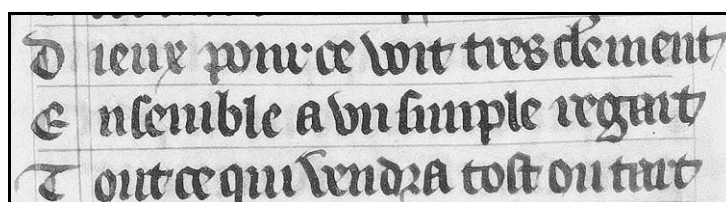 Dieux pour ce voit tres clerement
Ensemble a vn simple regart
Tout ce qui vendra tost ou tart